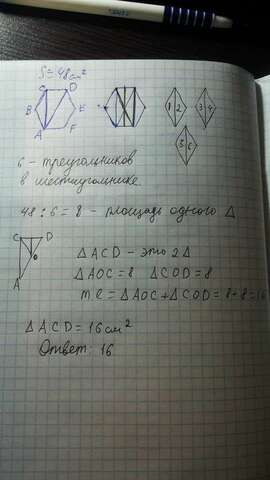 S = 48 см²
C D
B E
A F
1 2 3 4
5 6
6 - треугольников
в шестиугольнике.
48 : 6 = 8 - площадь одного Δ
C D
O
A
Δ ACD - это 2Δ
Δ AOC = 8 Δ COD = 8
т.е. = Δ AOC + Δ COD = 8 + 8 = 16
Δ ACD = 16 см²
Ответ: 16